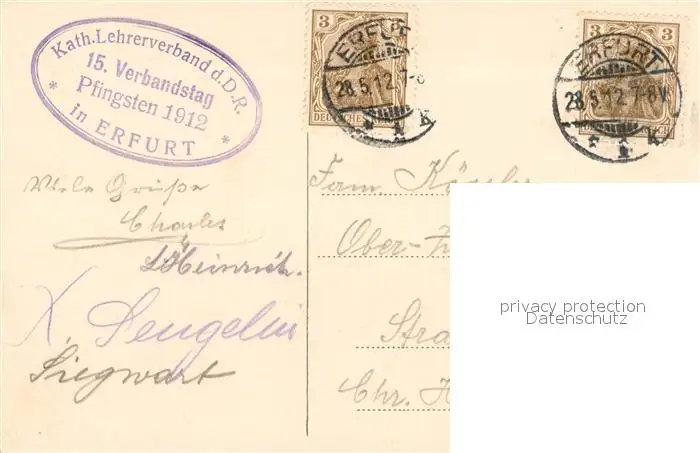 Kath. Lehrerverband d. D. R.
15. Verbandstag
Pfingsten 1912
* in ERFURT *
3 3
DEUTSCHES REICH
ERFURT
28.5.12.7-8
* * k
3 3
DEUTSCHES REICH
ERFURT
28.5.12.7-8V.
* * k
Viele Grüße
Charles
Heinrich.
X. Sengelin
Siegwart
Fam.
Ober-
Stra
Chr. H
privacy protection
Datenschutz